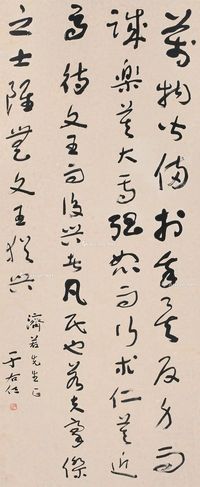 萬物皆備於我矣反身而
誠樂莫大焉強恕而行求仁莫近
焉待文王而後興者凡民也若夫豪傑
之士雖無文王猶興
濟 先生正
于右任